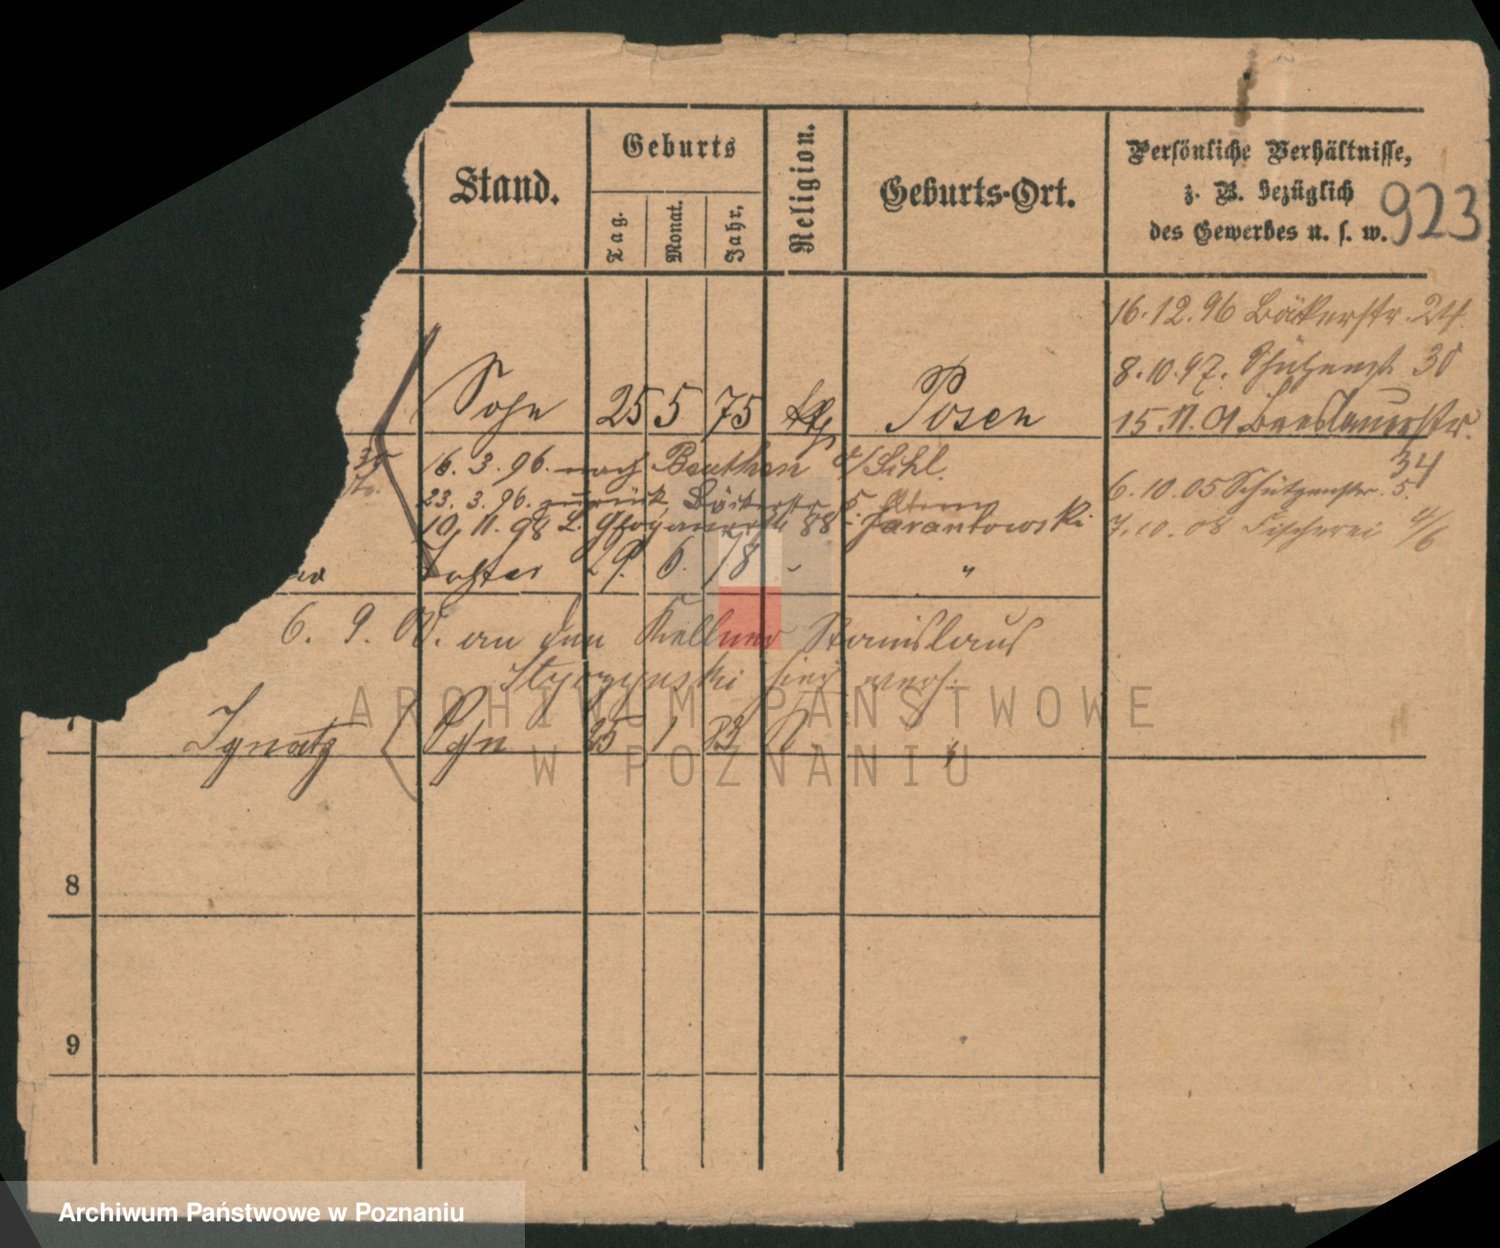 Stand.
Geburts
Tag.
Monat.
Jahr,
Religion.
Geburts-Ort.
Persönliche Verhältnisse,
z. B. bezüglich
des Gewerbes u. s. w.
923
16.12.96 Bäkerstr. 24
8.10.97. Schützenstr 30
Sohn 25 5 75 kth Posen
15.11.01. Breslauerstr.
34
16.3.96. nach Beuthen o/Schl.
23.3.96. zurück, Bäckerstr 5.
6.10.05 Schützenstr. 5.
10.11.98 L. Glogauerstr 88 Jarantowski
7.10.08 Fischerei 4/6
Tochter 29. 6. 78 - "
6. 9. 00. an den Kellner Stanislaus
hier verh.
7
Ignatz Sohn 25 1 "
8
9
ARCHIWUM PAŃSTWOWE
W POZNANIU
Archiwum Państwowe w Poznaniu